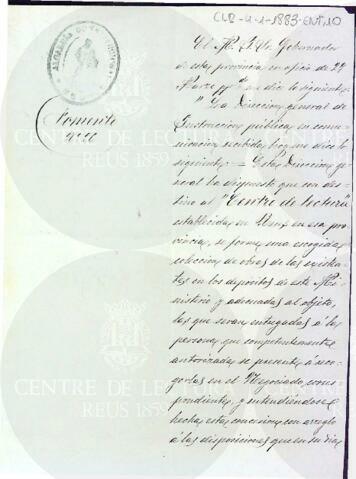 CLR-4-1-1883-ENT,10
ALCALDIA
Fomento
El M. I. Sr. Gobernador
de esta provincia en oficio de 29
Marzo ppº me dice lo siguiente:
"La Direccion general de
Instruccion pública en comu-
nicacion recibida hoy me dice lo
siguiente:= Esta Direccion ge-
neral ha dispuesto que con des-
tino al "Centro de lectura"
establecido en Reus en esa pro-
vincia, se forme una escogida
coleccion de obras de las existen-
tes en los depósitos de este Mi-
nisterio y adecuadas al objeto,
las que seran entregadas á la
persona que competentemente
autorizada se presente á reco-
gerlas en el Negociado corres-
pondiente, y entendiéndose
hecha esta concesion con arreglo
á las disposiciones que en su dia
CENTRE DE LECTURA
REUS 1859
CENTRE DE LECTURA
REUS 1859